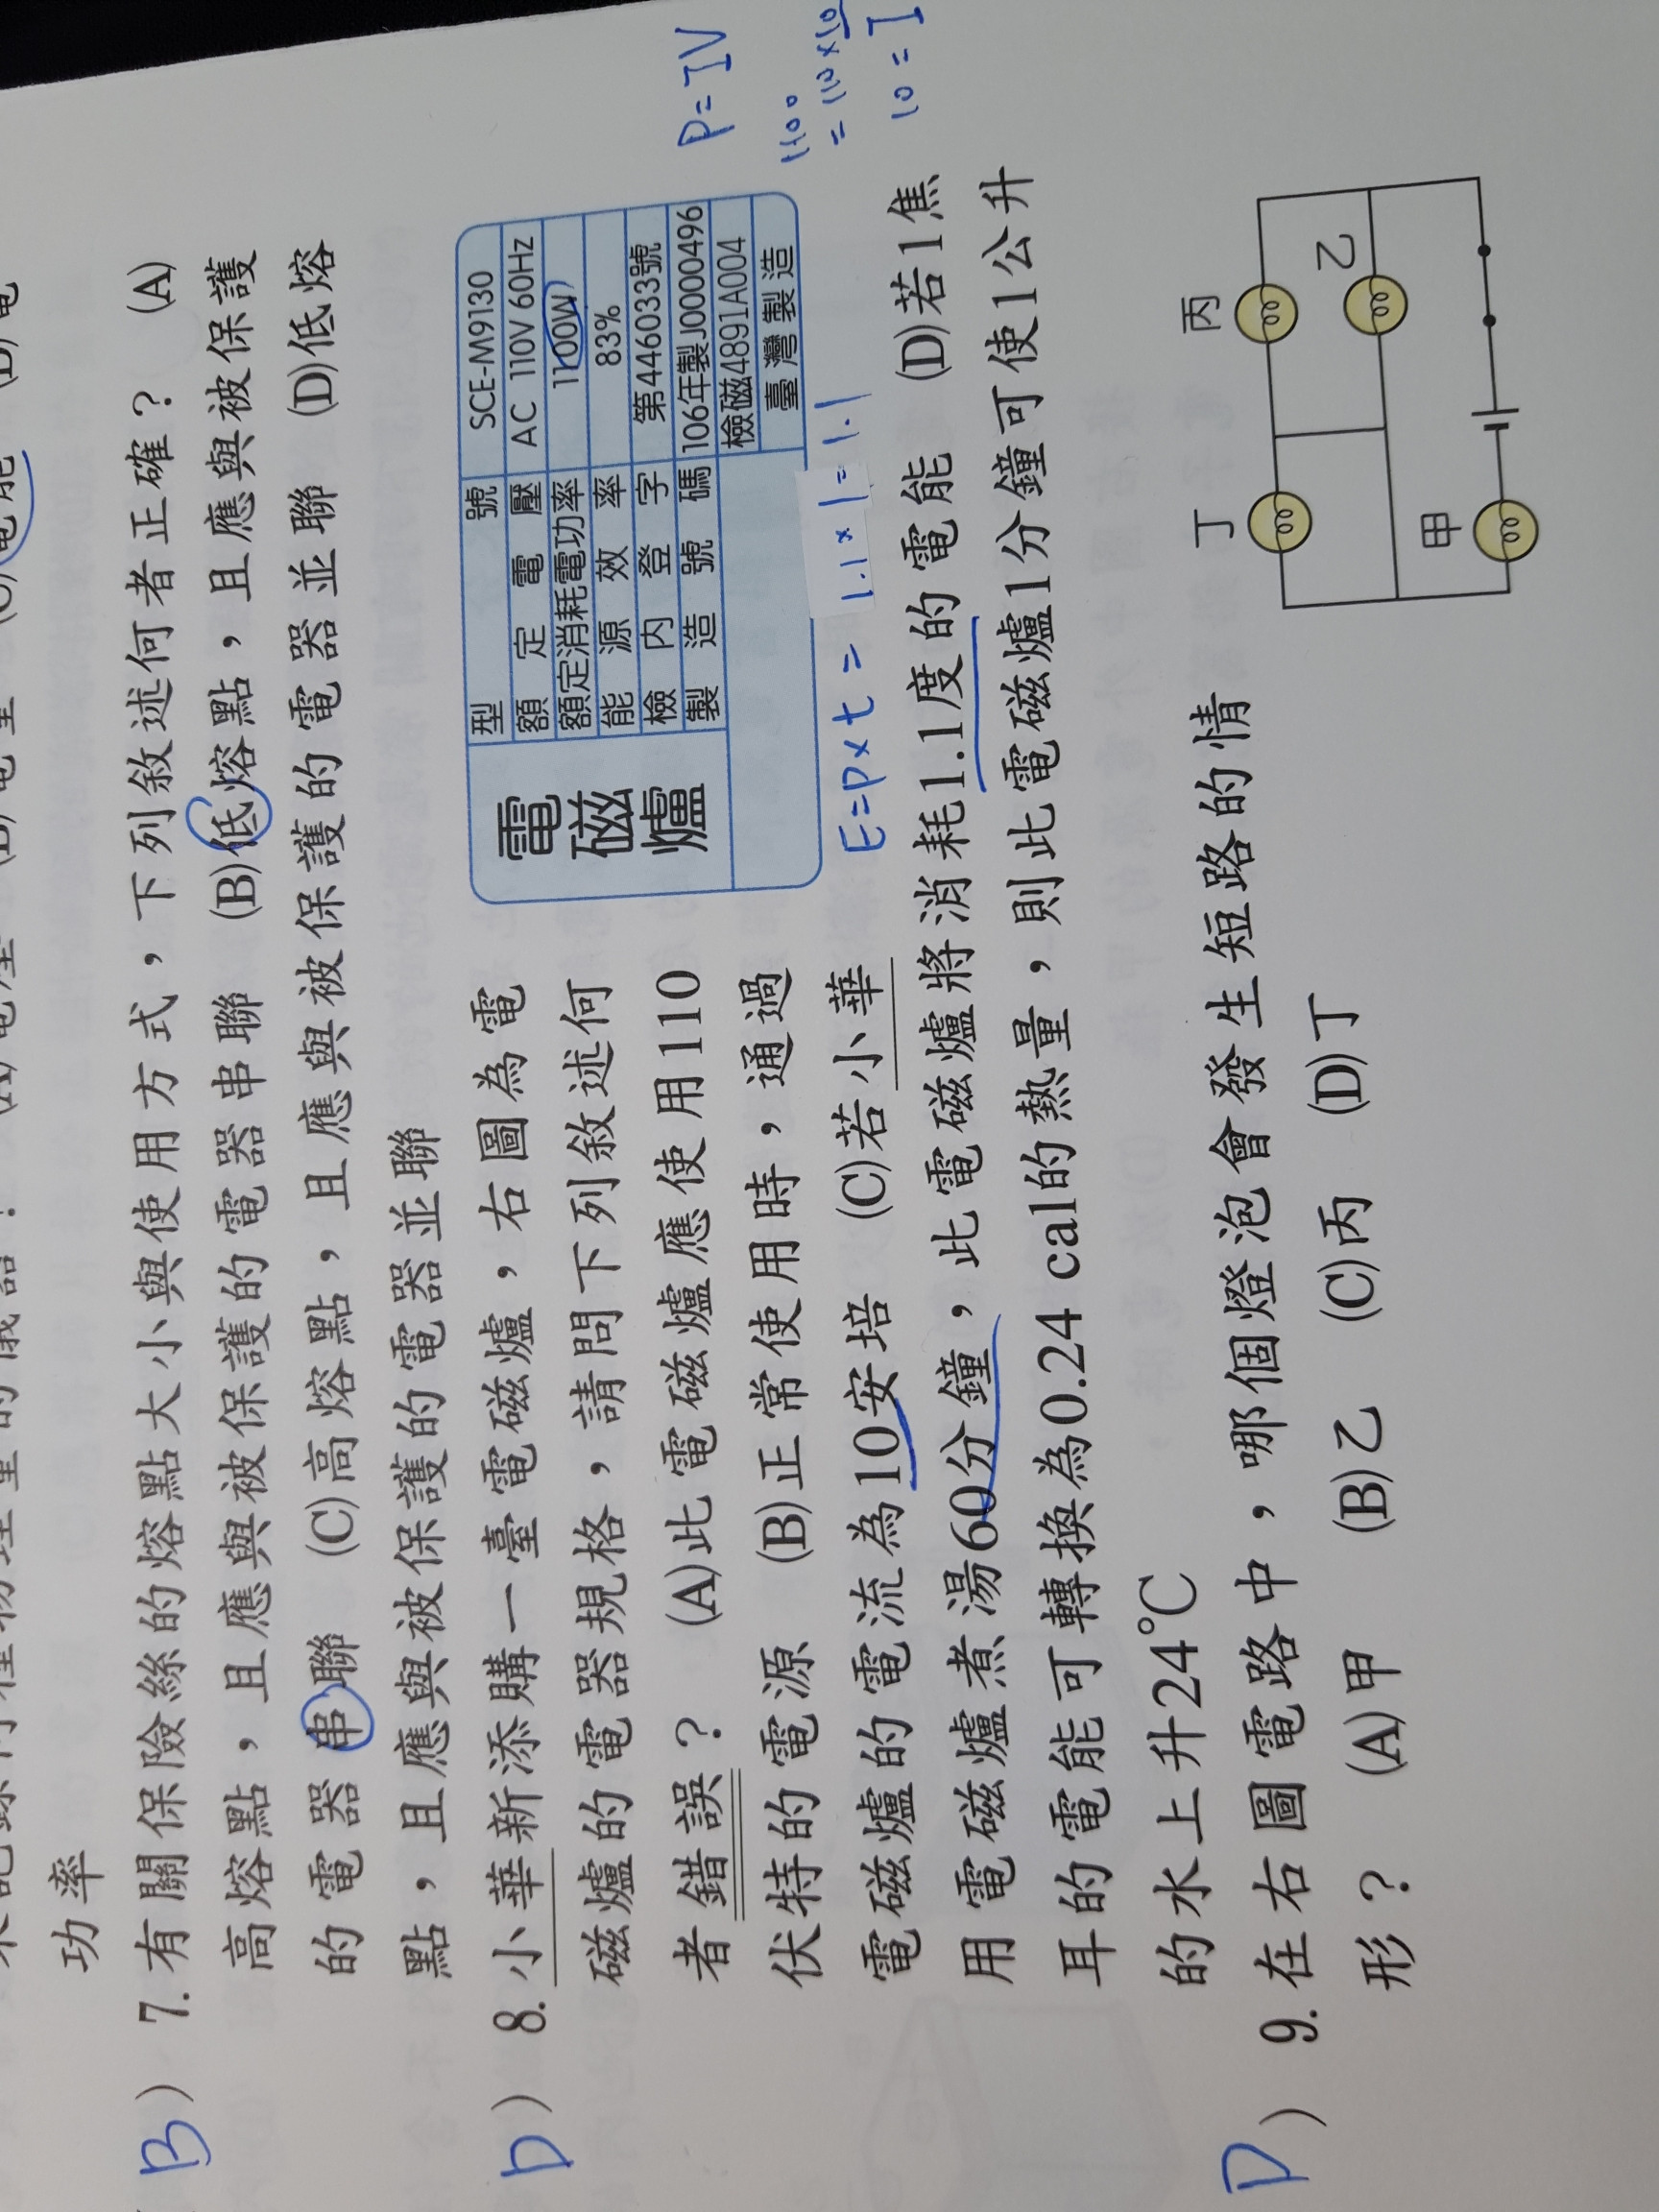 功率
B) 7. 有關保險絲的熔點大小與使用方式，下列敘述何者正確？ (A)
高熔點，且應與被保護的電器串聯 (B)低熔點，且應與被保護
的電器串聯 (C)高熔點，且應與被保護的電器並聯 (D)低熔
點，且應與被保護的電器並聯
D) 8. 小華新添購一臺電磁爐，右圖為電
磁爐的電器規格，請問下列敘述何
者錯誤？ (A)此電磁爐應使用110
伏特的電源 (B)正常使用時，通過
電磁爐的電流為10安培 (C)若小華
用電磁爐煮湯60分鐘，此電磁爐將消耗1.1度的電能 (D)若1焦
耳的電能可轉換為0.24 cal的熱量，則此電磁爐1分鐘可使1公升
的水上升24℃
電磁爐
型號 SCE-M9130
額定電壓 AC 110V 60Hz
額定消耗電功率 1100W
能源效率 83%
檢內登字 第446033號
製造號碼 106年製J0000496
檢磁4891A004
臺灣製造
P=IV
1100
=110×10
10=I
E=P×t=1.1×1=1.1
D) 9. 在右圖電路中，哪個燈泡會發生短路的情
形？ (A)甲 (B)乙 (C)丙 (D)丁
丁
丙
乙
甲